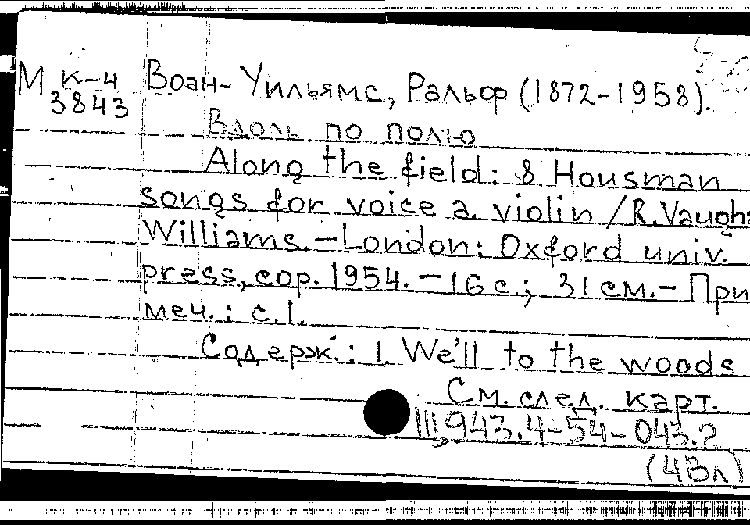 М к-4 Воан-Уильямс, Ральф (1872-1958).
3843
Вдоль по полю
Along the field: 8 Housman
songs for voice a. violin / R. Vaugh
Williams. - London: Oxford univ.
press, cop. 1954. - 16 с.; 31 см. - При
меч.: с.1.
Содерж.: 1. We'll to the woods
См. след. карт.
III 943.4-54-043.2
(4Вл)